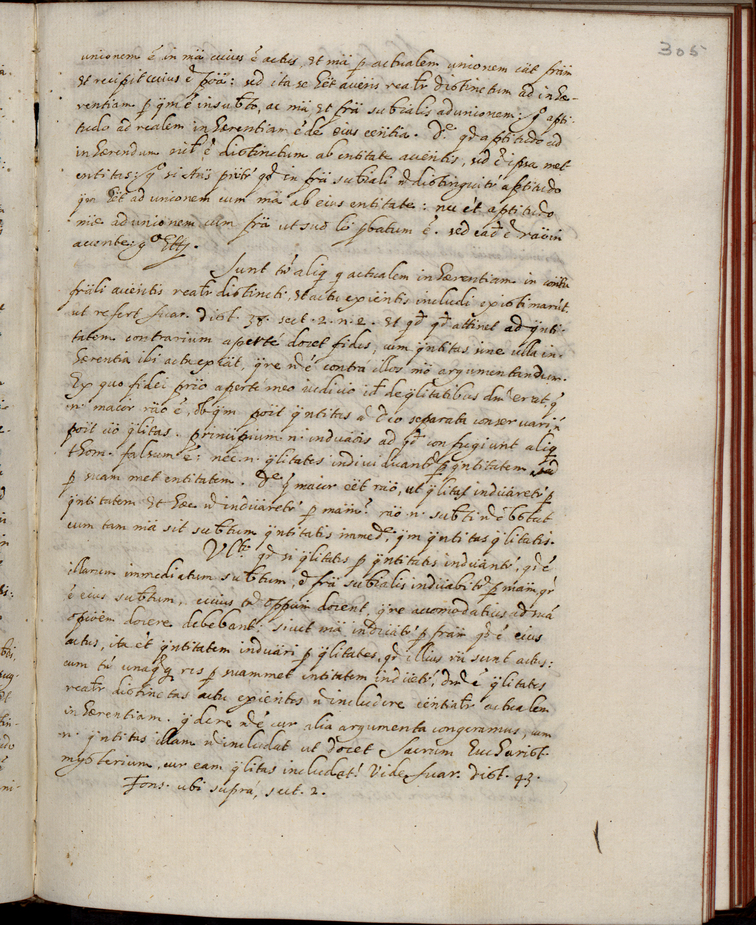 305
unionem ē in mã cuius ē actus, et mã p actualem unionem cũt frãm
et recipit cuius ē põa: sed ita se hēt accñs realr̃ distinctum ad inhæ-
rentiam p qm̃ ē in subto, ac mã et frã subialis ad unionem: gº apti-
tudo ad realem inhærentiam ē de eius eentia. Dº qª aptitudo ad
inhærendum nil ē distinctum ab entitate accñtis, sed ē ipsa met
entitas: gº si Ans prr̃ qª in frã subiali ñ distinguitr̃ aptitudo
qm̃ hēt ad unionem cum mã ab eius entitate: nec ēt aptitudo
mæ ad unionem cum frã ut suo lo pbatum ē. sed eadē ē raõ in
accnte: gº Ettj.
Sunt tñ aliq q actualem inhærentiam in
frãli accñtis realr̃ distincti, et actu exñtis includi existimarũt
ut refert Suar. Dist. 38. sect. 2. n. 2. et qª qª attinet ad qnti-
tatem contrarium apertè docet fides, cum qntitas sine ulla in-
hærentia ibi actu exēat, qre ñ ē contra illos mõ argumentandum.
Ex quo fidei prio aperte meo iudicio id de qlitatibus
n. maior raõ ē, ob qm̃ posit qntitas a Deo separata conservari,
posit ñ qlitas. principium n. induãtis ad qª confugiunt aliq
thom. falsum ē: nec n. qlitates individuantr̃ p qntitatem, sed
p suam met entitatem. Dº q maior eēt raõ, ut qlitas induãretr p
qntitatem et hæc ñ induãretr p mãm?
cum tam mã sit subtum qntitatis immede, qm̃ qntitas qlitatis.
Vlt. qª si qlitates p qntitates induãntr̃, qª ē
illarum immediatum subtum, ē frã subialis induabitr̃ p mãm, qª
ē eius subtum, cuius tñ oppm̃ docent, qre accomodatius ad suã
opiõem docere debebant. sicut mã induãtr̃ p frãm qª ē eius
actus, ita ēt qntitatem induãri p qlitates, qª illius sunt actus:
cum tñ unaqq res p suammet entitatem induētr̃, ē qlitates
realr̃ distinctas actu exñtes ñ includere eentialr̃ actualem
inhærentiam. qdere ñ ē cur alia argumenta congeramus, cum
n. qntitas illam ñ includat ut docet Sacrum Eucharist.
mysterium, cur eam qlitas includat! Vide Suar. Dist. 43.
Fons. ubi suprá, sect. 2.